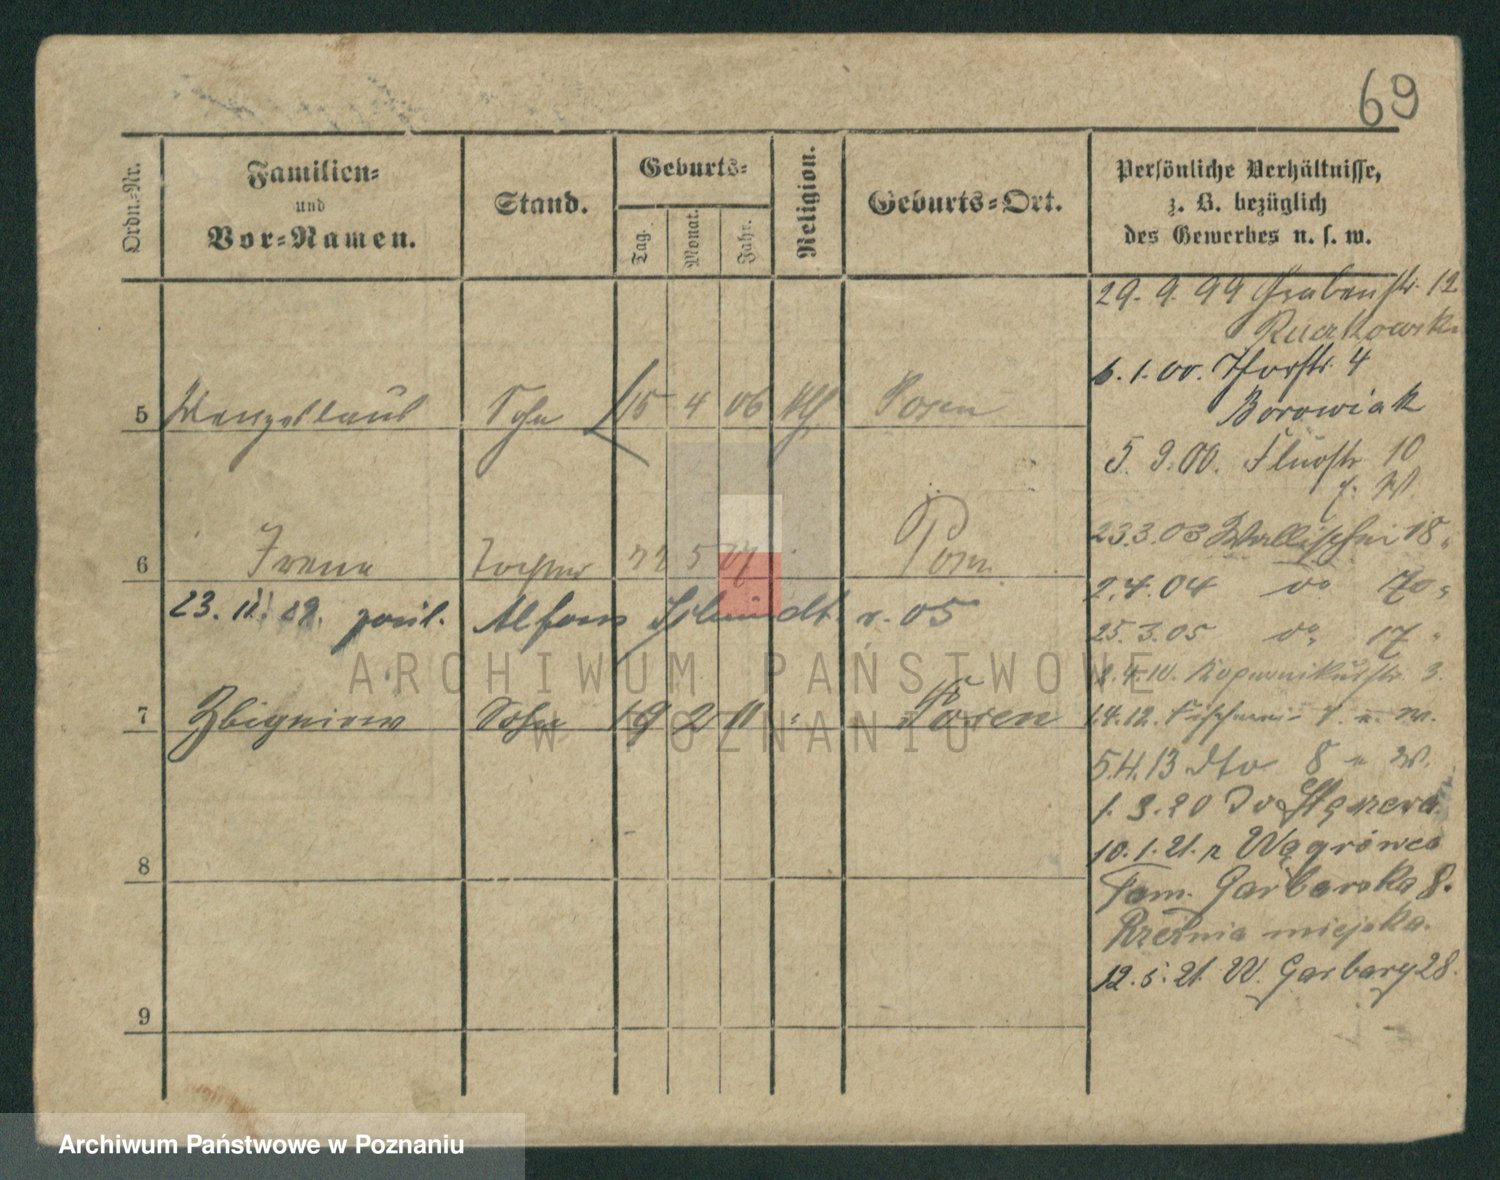 69
Ordn.-Nr.
Familien-
und
Vor-Namen.
Stand.
Geburts-
Tag.
Monat.
Jahr.
Religion.
Geburts-Ort.
Persönliche Verhältnisse,
z. B. bezüglich
des Gewerbes u. s. w.
29. 9. 99 Grabenstr. 12
6. 1. 00. Thorstr. 4
Borowiak
5 Wenzeslaus Sohn 15 4 06 kth Posen
5. 9. 00. Flurstr 10
23.3.03 Wallischei 18
6 Irena Tochter 22 5 07 Posen
2.4.04 do 70
23. 11. 18. Alfons Schmidt v. 05
25.3.05 do 17
8.4.10. Kopernikusstr. 3.
7 Zbigniew Sohn 19 2 11 " Posen
14.12.
5.4.13 dto 8
1. 3. 20
10. 1. 21. z Wągrówca
8
Garbarska 8.
Rzeźnia miejska.
12. 5. 21. W. Garbary 28.
9
ARCHIWUM PAŃSTWOWE
W POZNANIU
Archiwum Państwowe w Poznaniu